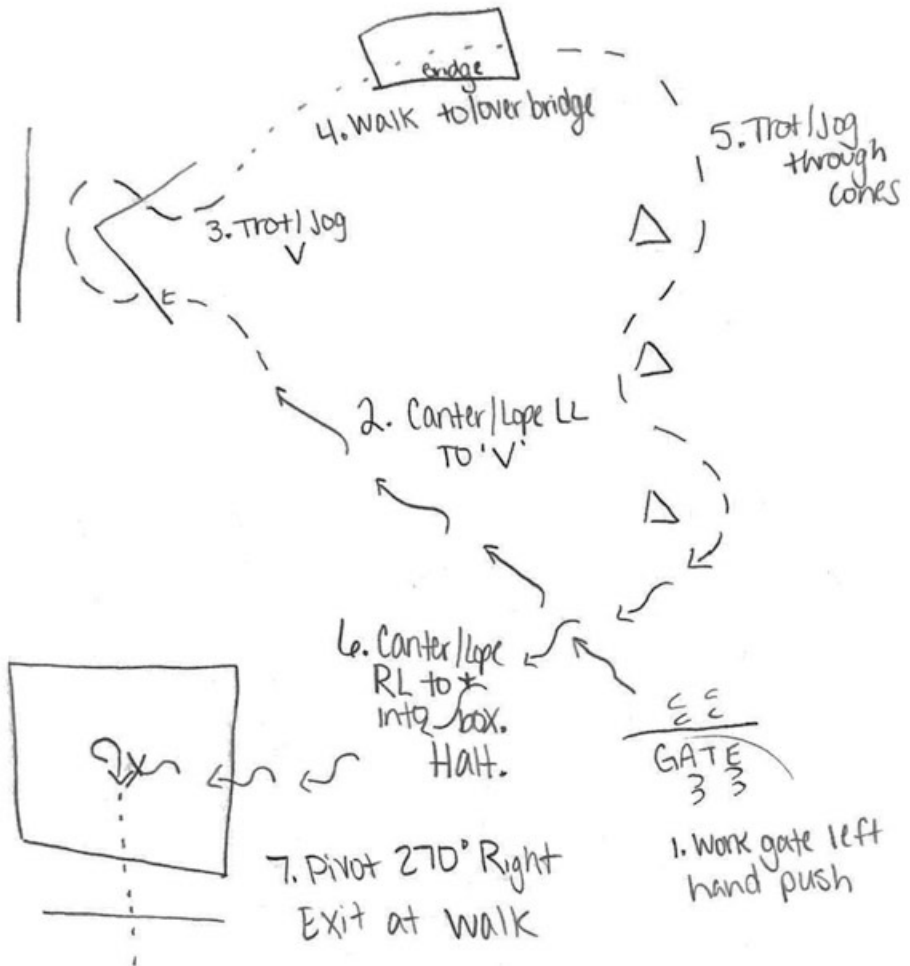 bridge
4. Walk to/over bridge
5. Trot/Jog
through
cones
3. Trot/Jog
V
2. Canter/Lope LL
TO 'V'
6. Canter/Lope
RL to +
into box.
Halt.
GATE
1. Work gate left
hand push
7. Pivot 270° Right
Exit at Walk